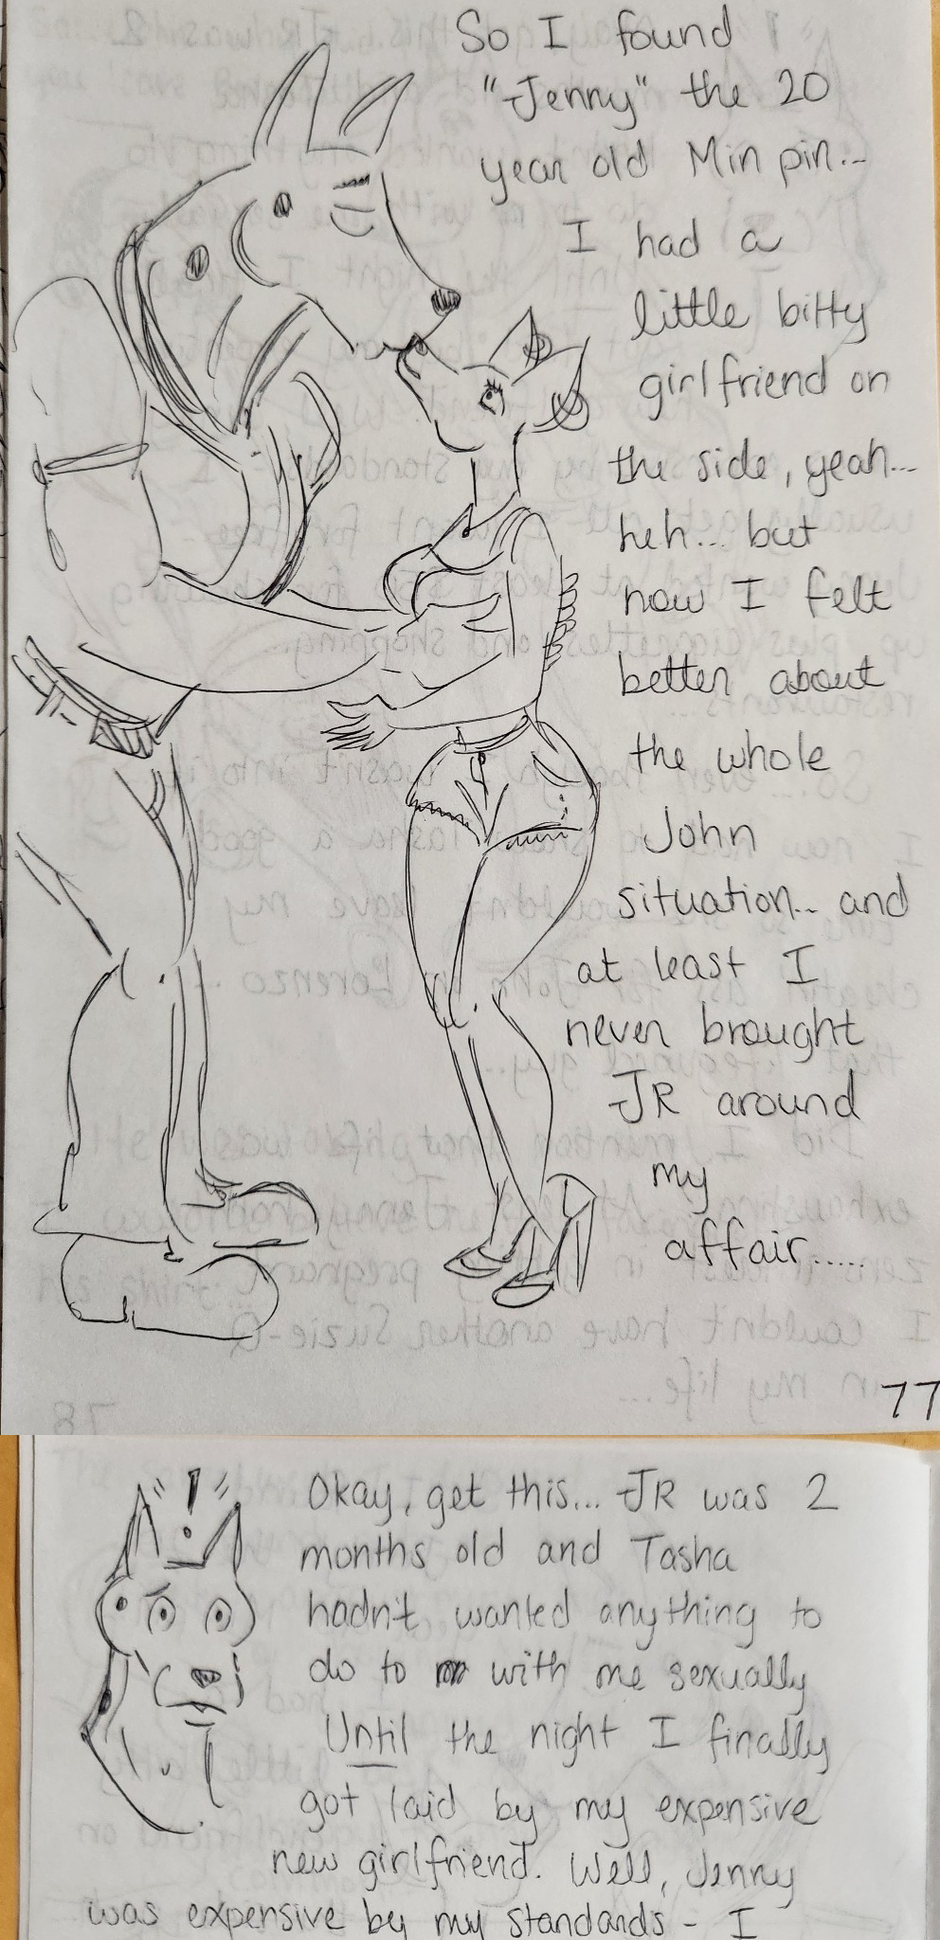 So I found
"Jenny" the 20
year old Min pin...
I had a
little bitty
girlfriend on
the side, yeah...
heh... but
now I felt
better about
the whole
John
situation... and
at least I
never brought
JR around
my
affair.....
77
Okay, get this... JR was 2
months old and Tasha
hadn't wanted anything to
do to with me sexually
Until the night I finally
got laid by my expensive
new girlfriend. Well, Jenny
was expensive by my standards - I